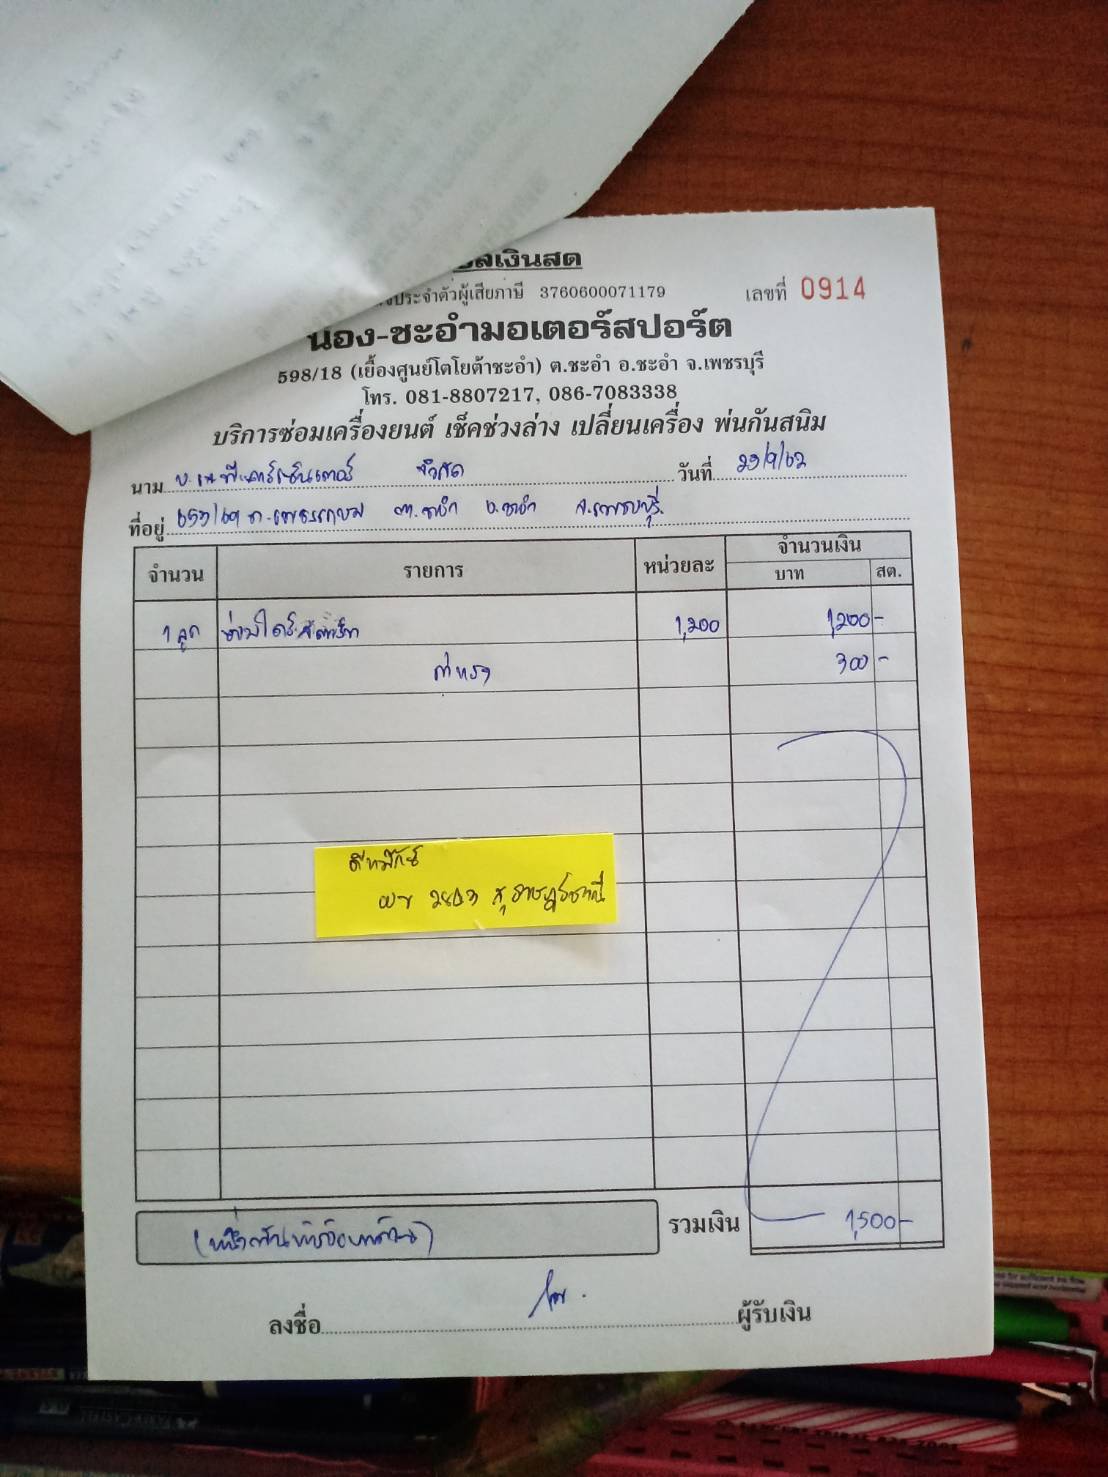 บิลเงินสด
ประจำตัวผู้เสียภาษี 3760600071179 เลขที่ 0914
น้อง-ชะอำมอเตอร์สปอร์ต
598/18 (เยื้องศูนย์โตโยต้าชะอำ) ต.ชะอำ อ.ชะอำ จ.เพชรบุรี
โทร. 081-8807217, 086-7083338
บริการซ่อมเครื่องยนต์ เช็คช่วงล่าง เปลี่ยนเครื่อง พ่นกันสนิม
นาม จำกัด วันที่ 23/9/62
ที่อยู่ ถ.เพชรเกษม ต.ชะอำ อ.ชะอำ จ.เพชรบุรี
จำนวน รายการ หน่วยละ จำนวนเงิน
บาท สต.
1 ลูก ซ่อมไดร์สตาร์ท 1,200 1,200 -
ค่าแรง 300 -
สุราษฎร์ธานี
(หนึ่งพันห้าร้อยบาทถ้วน) รวมเงิน 1,500 -
ลงชื่อ ผู้รับเงิน